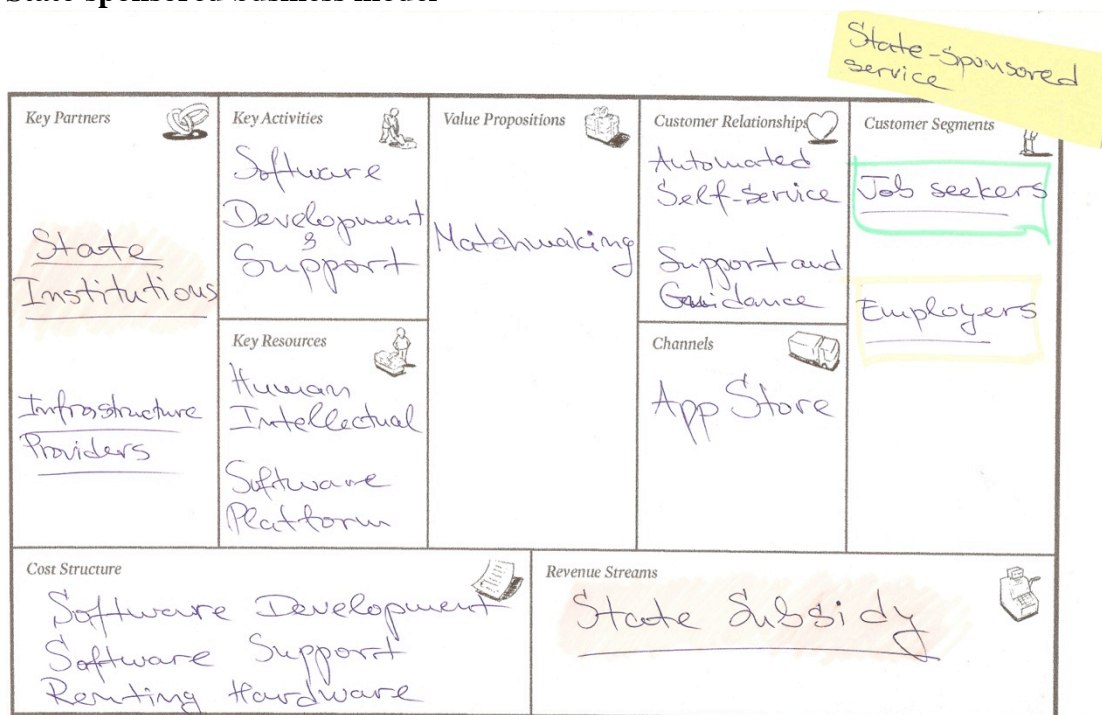 State-sponsored business model
State-Sponsored
service
Key Partners
State
Institutions
Infrastructure
Providers
Key Activities
Software
Development
&
Support
Key Resources
Human
Intellectual
Software
Platform
Value Propositions
Matchmaking
Customer Relationships
Automated
Self-Service
Support and
Guidance
Channels
App Store
Customer Segments
Job seekers
Employers
Cost Structure
Software Development
Software Support
Renting Hardware
Revenue Streams
State Subsidy